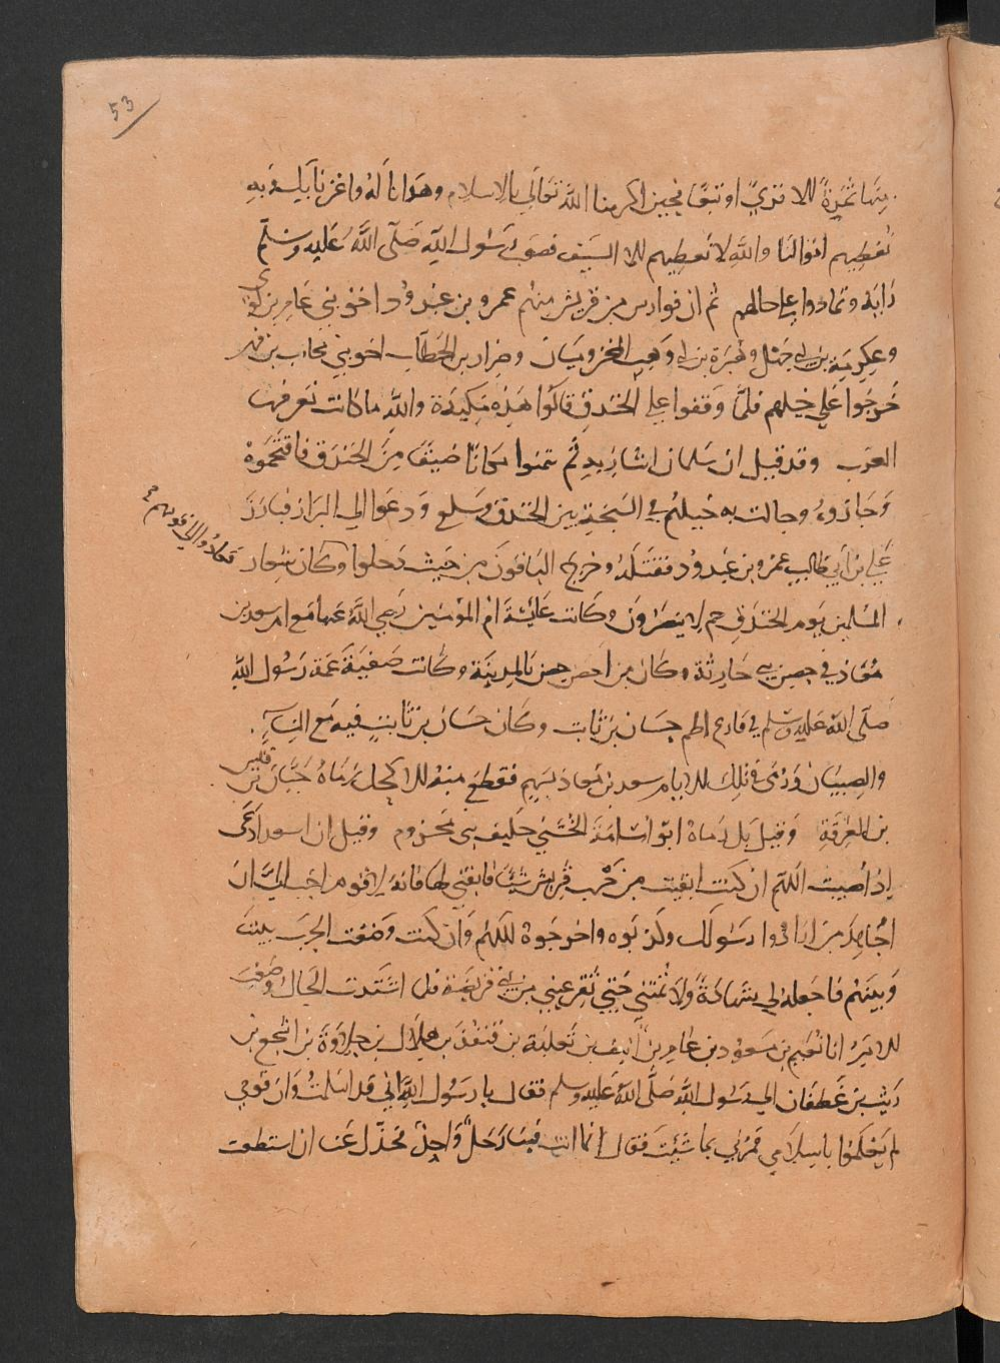 53
منها ثمرة الا قرى او بيعا فحين اكرمنا الله تعالى بالاسلام وهدانا له واعزنا بك وبه
نعطيهم اموالنا والله لا نعطيهم الا السيف فصوب رسول الله صلى الله عليه وسلم
رايه وتمادوا على حالهم ثم ان فوارس من قريش منهم عمرو بن عبد ود اخو بني عامر بن لوى
وعكرمة بن ابي جهل وهبيرة بن ابي وهب المخزوميان وضرار بن الخطاب اخو بني محارب بن فهر
خرجوا على خيلهم فلما وقفوا على الخندق قالوا هذه مكيدة والله ما كانت تعرفها
العرب وقد قيل ان سلمان اشار به ثم تيمنوا مكانا ضيقا من الخندق فاقتحموه
وجازوه وجالت بهم خيلهم في السبخة بين الخندق وسلع ودعوا الى البراز فبارز
علي بن ابي طالب عمرو بن عبد ود فقتله وخرج الباقون من حيث دخلوا وكان شعار
فعادوا الى قومهم
المسلمين يوم الخندق حم لا ينصرون وكانت عائشة ام المؤمنين رضي الله عنها مع ام سعد بن
معاذ في حصن بني حارثة وكان من احصن حصن بالمدينة وكانت صفية عمة رسول الله
صلى الله عليه وسلم في فارع اطم حسان بن ثابت وكان حسان بن ثابت فيه مع النساء
والصبيان ورمى في تلك الايام سعد بن معاذ بسهم فقطع منه الاكحل رماه حبان بن قيس
بن العرقة وقيل بل رماه ابو اسامة الجشمي حليف بني مخزوم وقيل ان سعدا دعى
اذ اصيب اللهم ان كنت ابقيت من حرب قريش شيئا فابقني لها فانه لا قوم احب الي ان
اجاهد من اذوا رسولك وكذبوه واخرجوه اللهم وان كنت وضعت الحرب بيننا
وبينهم فاجعله لي شهادة ولا تمتني حتى تقر عيني من بني قريظة فلما اشتدت الحال وصعب
الامر اتا نعيم بن مسعود بن عامر بن انيف بن ثعلبة بن قنفذ بن هلال بن خلاوة بن اشجع بن
ريث بن غطفان الى رسول الله صلى الله عليه وسلم فقال يا رسول الله اني قد اسلمت وان قومي
لم يعلموا باسلامي فمرني بما شئت فقال انما انت فينا رجل واحد فخذل عنا ان استطعت